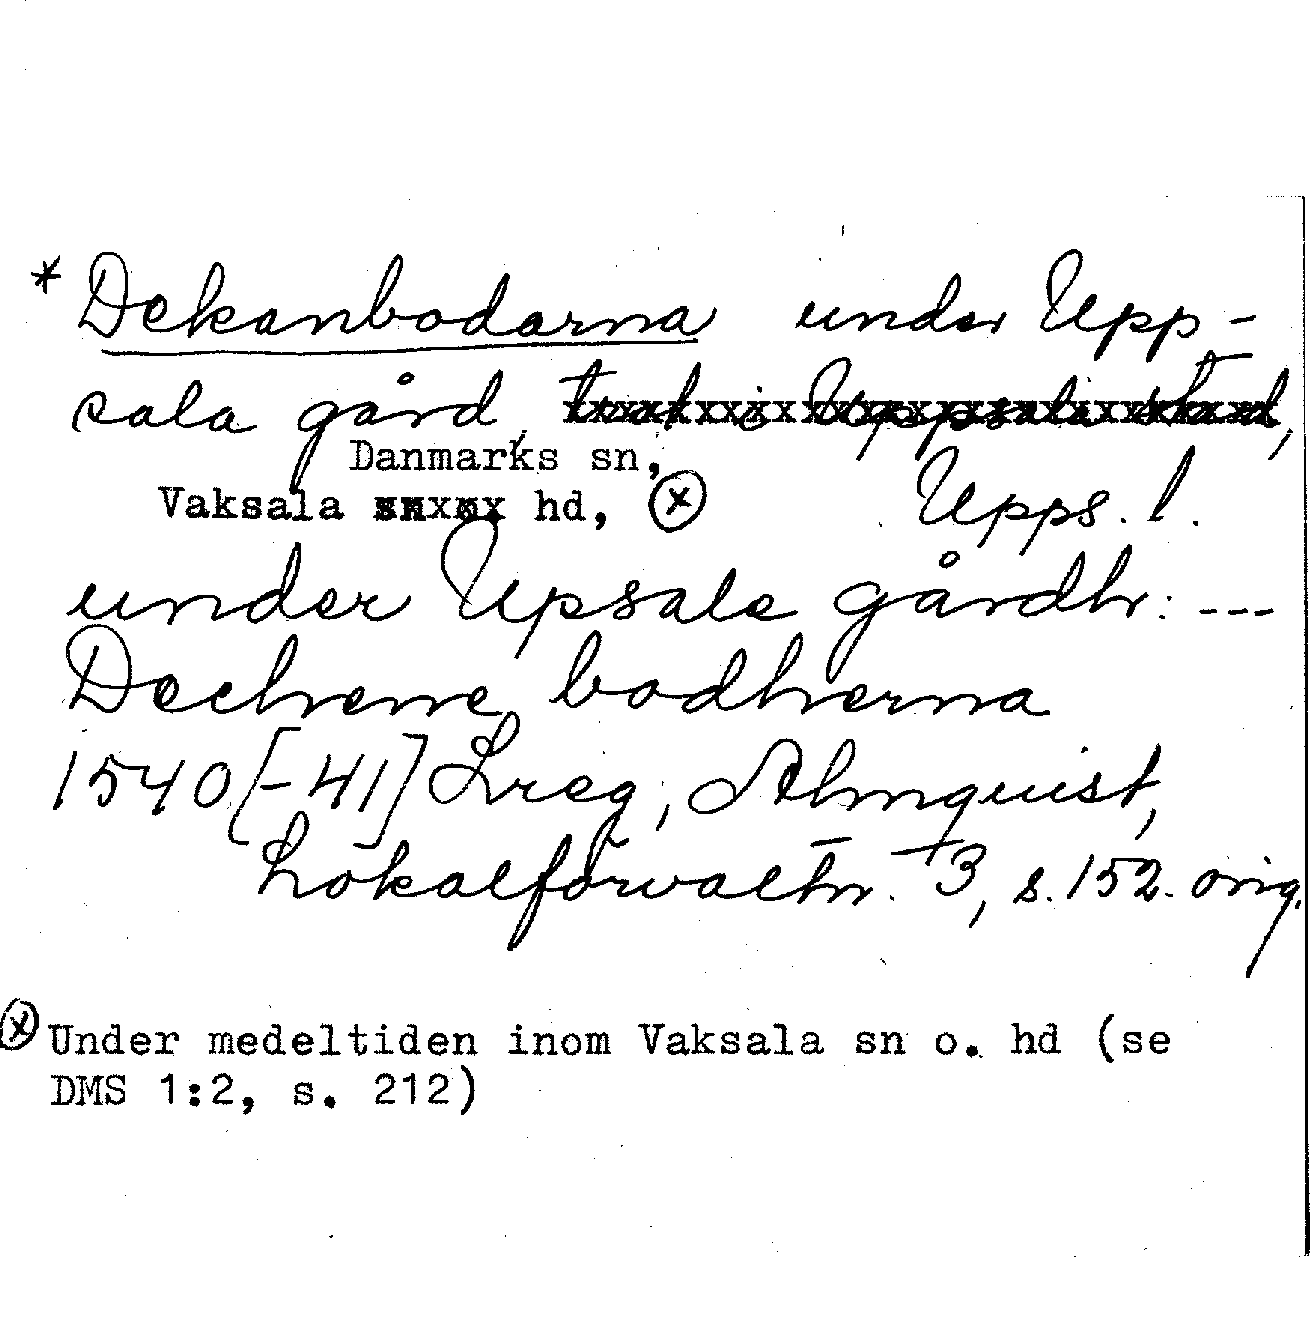 * Dekanbodarna under Upp-
sala gård, trakt i Uppsala stad,
Danmarks sn,
Vaksala sn o hd, ⓧ Upps. l.
under Upsale gårdh: ---
Dechene bodherna
1540[-41] Lreg, Almquist,
Lokalförvaltn. 3, s. 152. orig.
ⓧ Under medeltiden inom Vaksala sn o. hd (se
DMS 1:2, s. 212)